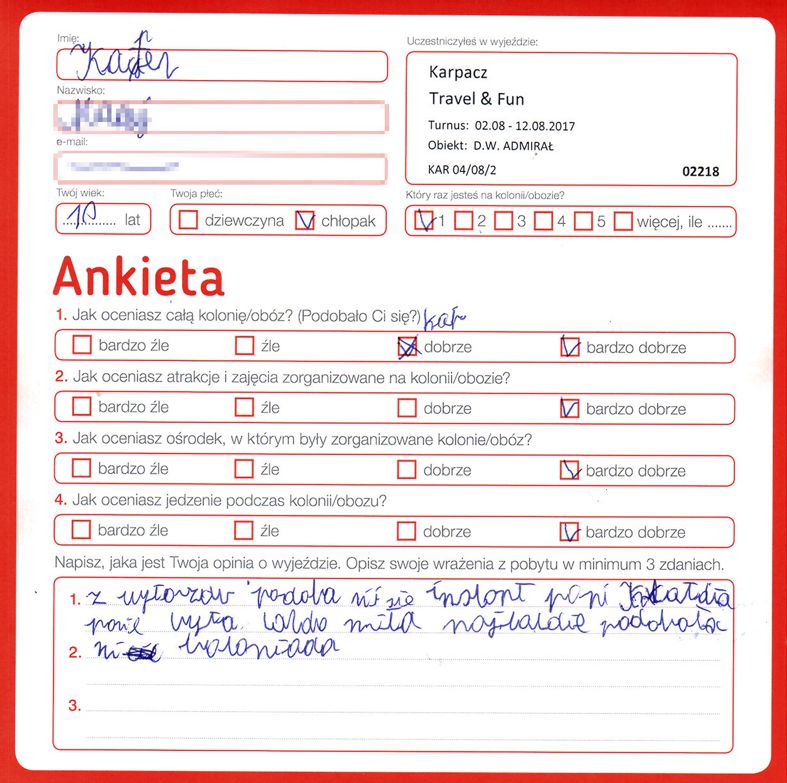 Imię:
Kacper
Uczestniczyłeś w wyjeździe:
Karpacz
Travel & Fun
Turnus: 02.08 - 12.08.2017
Obiekt: D.W. ADMIRAŁ
KAR 04/08/2
02218
Nazwisko:
e-mail:
Twój wiek:
10 lat
Twoja płeć:
dziewczyna chłopak
Który raz jesteś na kolonii/obozie?
1 2 3 4 5 więcej, ile .......
Ankieta
1. Jak oceniasz całą kolonię/obóz? (Podobało Ci się?)
bardzo źle źle dobrze bardzo dobrze
2. Jak oceniasz atrakcje i zajęcia zorganizowane na kolonii/obozie?
bardzo źle źle dobrze bardzo dobrze
3. Jak oceniasz ośrodek, w którym były zorganizowane kolonie/obóz?
bardzo źle źle dobrze bardzo dobrze
4. Jak oceniasz jedzenie podczas kolonii/obozu?
bardzo źle źle dobrze bardzo dobrze
Napisz, jaka jest Twoja opinia o wyjeździe. Opisz swoje wrażenia z pobytu w minimum 3 zdaniach.
1. z podoba się pani
miła
2. ni
3.